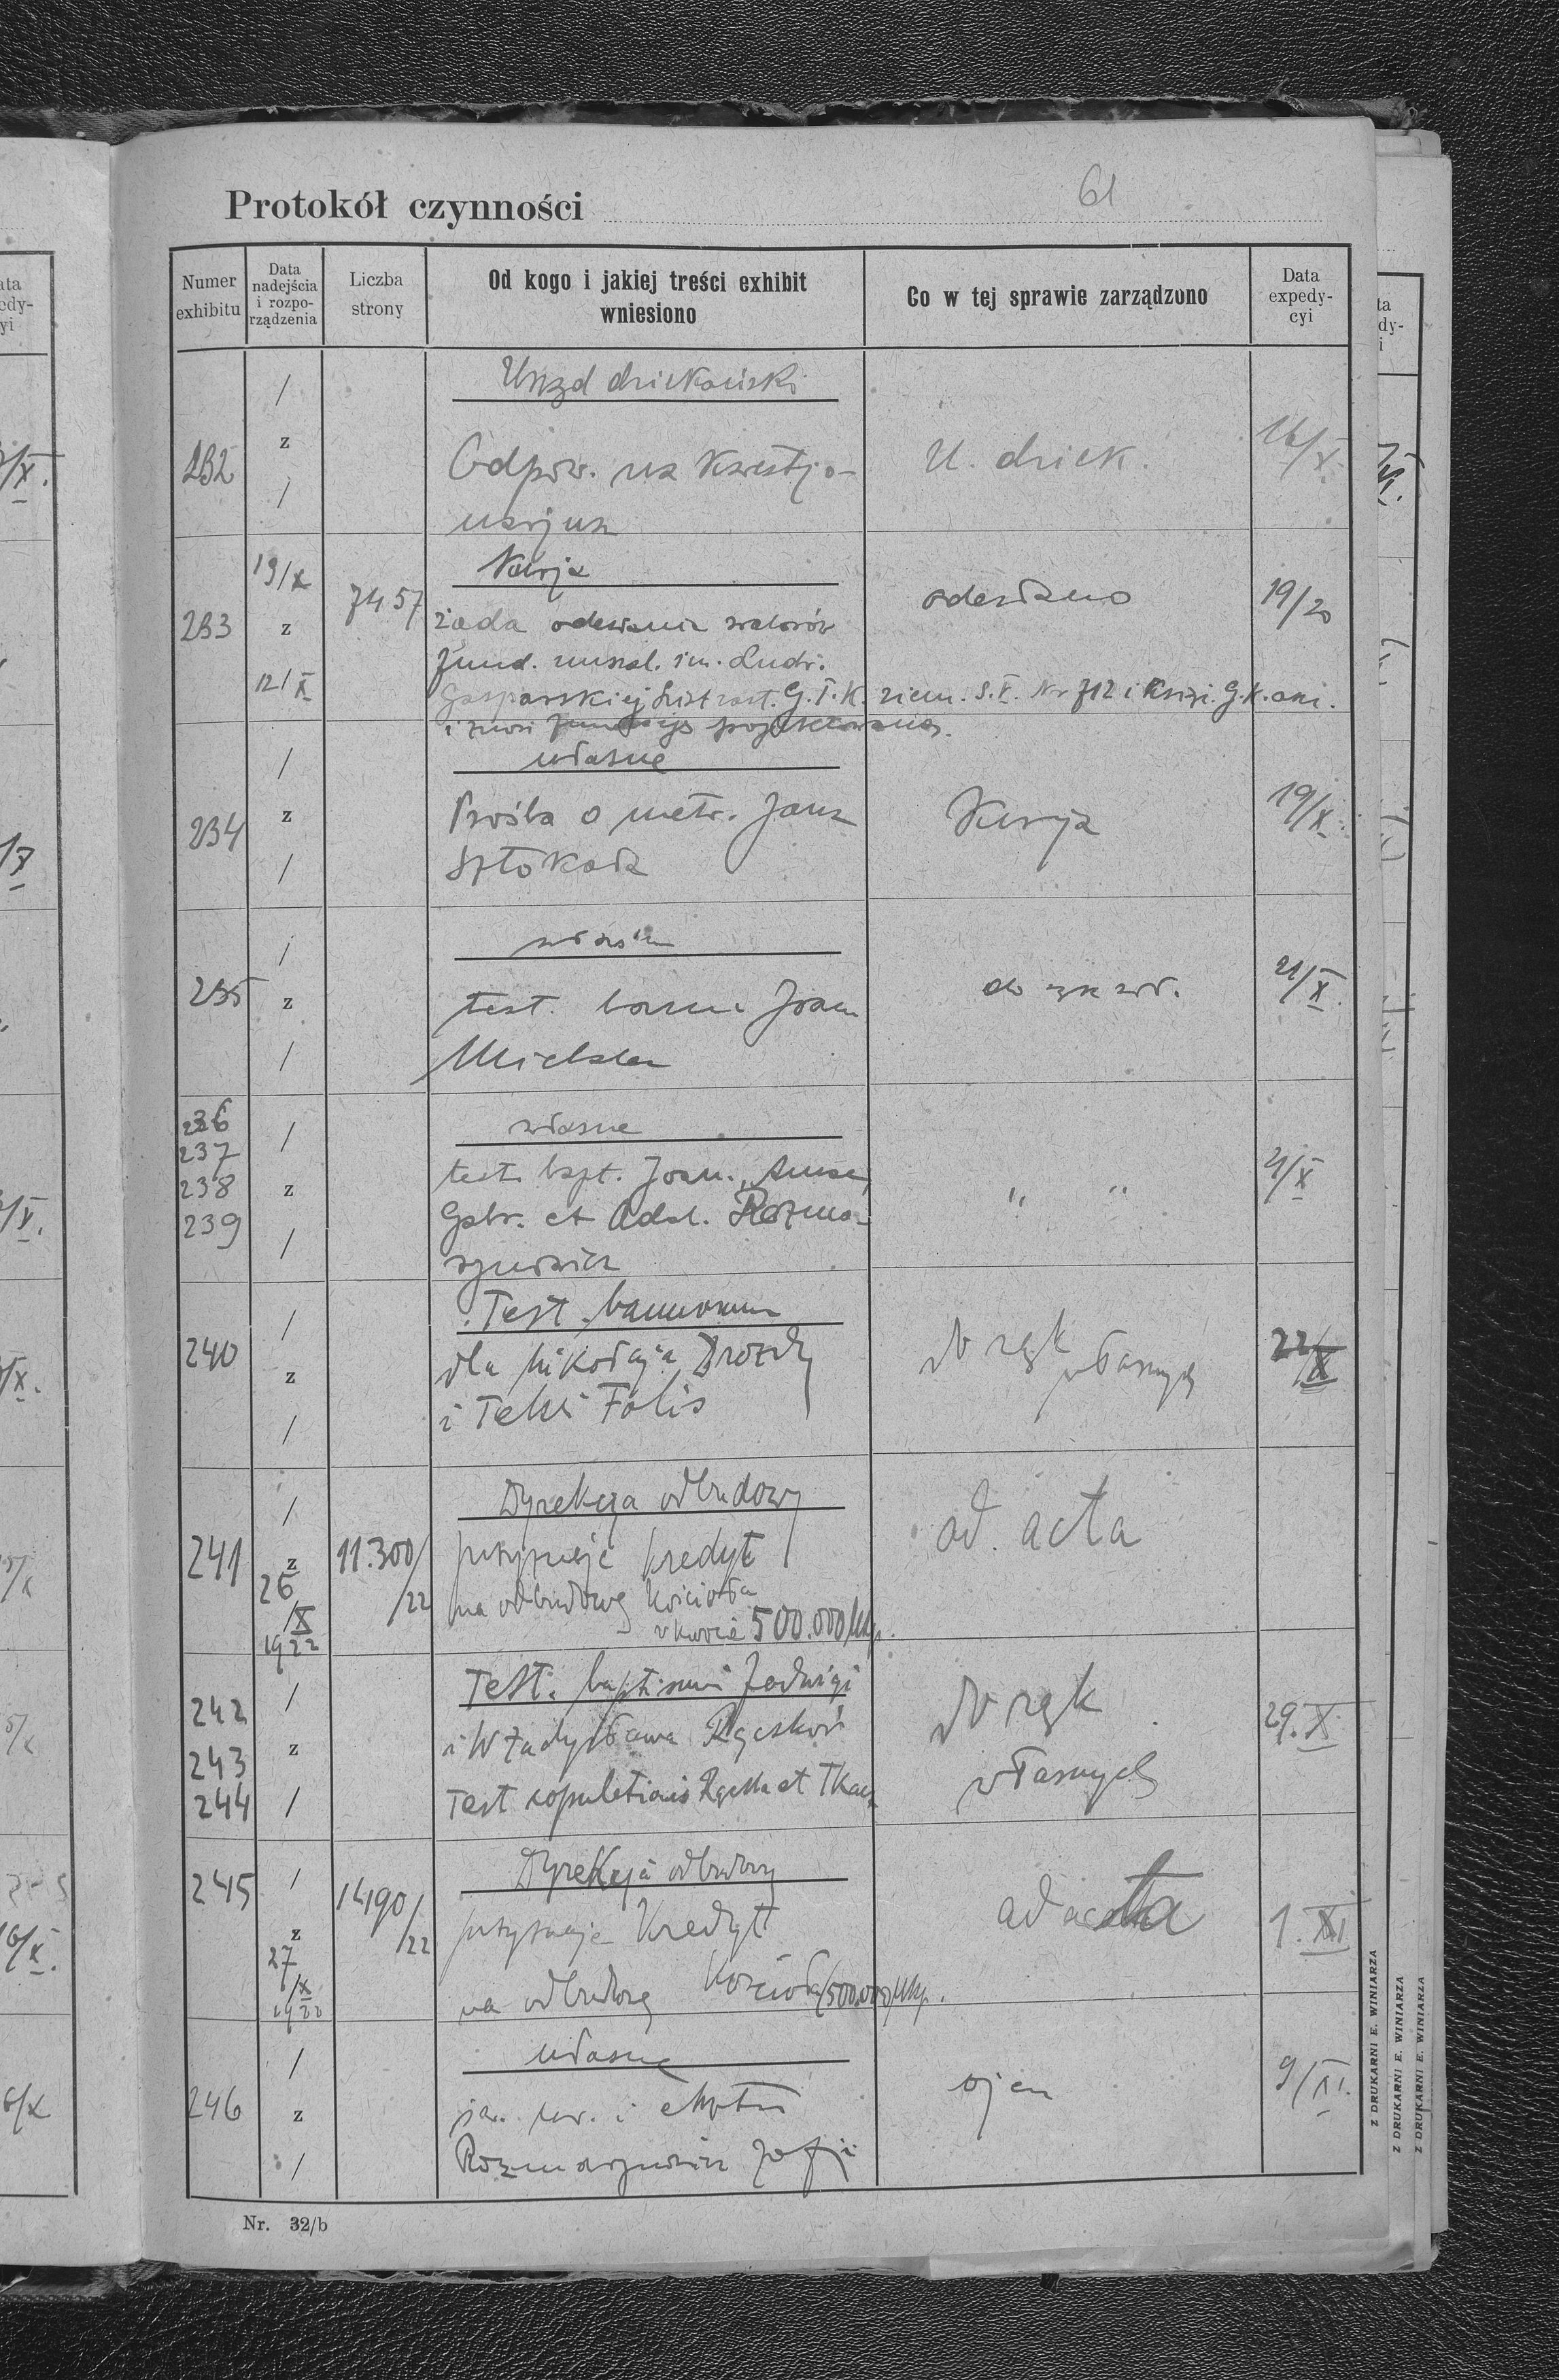 Protokół czynności
61
Numer exhibitu
Data nadejścia i rozporządzenia
Liczba strony
Od kogo i jakiej treści exhibit wniesiono
Co w tej sprawie zarządzono
Data expedycyi
Urząd dziekański
232 / z /
Odpow. na kwestjo-
narjusz
U. dziek.
16/X.
Kurja
233 19/X z 12/X
7457
żąda odesłania walorów
fund. mszal. im. Ludw.
Gasparskiej List zast. G. T. K. ziem. S. V. Nr 712 i Książ. G. K.
i zwrot fundacyę projektowaną.
odesłano
19/20
własne
234 / z /
Prośba o metr. Jana
Sztokała
Kurja
19/X.
235 / z /
test. Joan
do rąk wł.
21/X.
własne
236
237
238
239
/ z /
test. bapt. Joan., Annae,
Gabr. et Adal. Rozma-
rynowicz
" "
21/X
Test. bannorum
240 / z /
dla Mikołaja Drozdy
i Tekli Folis
do rąk własnych
22/X
Dyrekcja odbudowy
241 / z 26/X 1922
11.300/22
przyznaje kredyt
na odbudowę kościoła
w kwocie 500.000 Mkp.
ad acta
Test. baptismi Jadwigi
242
243
244
/ z /
i Władysława Rączków
Test copulationis Rączka et Tkacz
do rąk
własnych
29. X.
Dyrekcja odbudowy
245 / z 27/X 1922
1490/22
przyznaje kredyt
na odbudowę kościoła/500.000 Mkp.
ad acta
1. XI
własne
246 / z /
Rozmarynowicz Zofji
9/XI.
Nr. 32/b
Z DRUKARNI E. WINIARZA
Z DRUKARNI E. WINIARZA
Z DRUKARNI E. WINIARZA